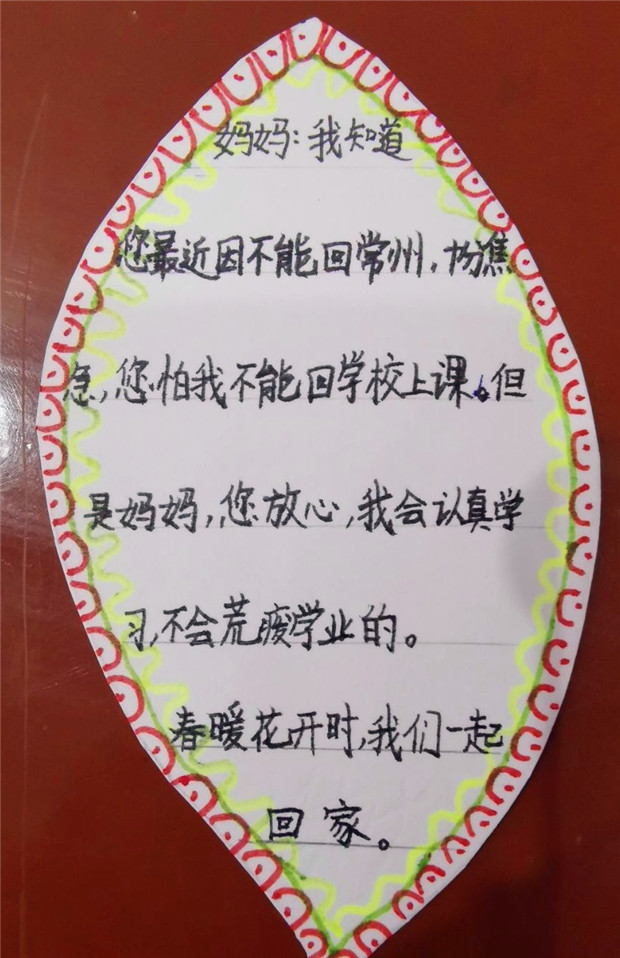 妈妈：我知道
您最近因不能回常州，焦
急，您怕我不能回学校上课。但
是妈妈，您放心，我会认真学
习，不会荒废学业的。
春暖花开时，我们一起
回家。